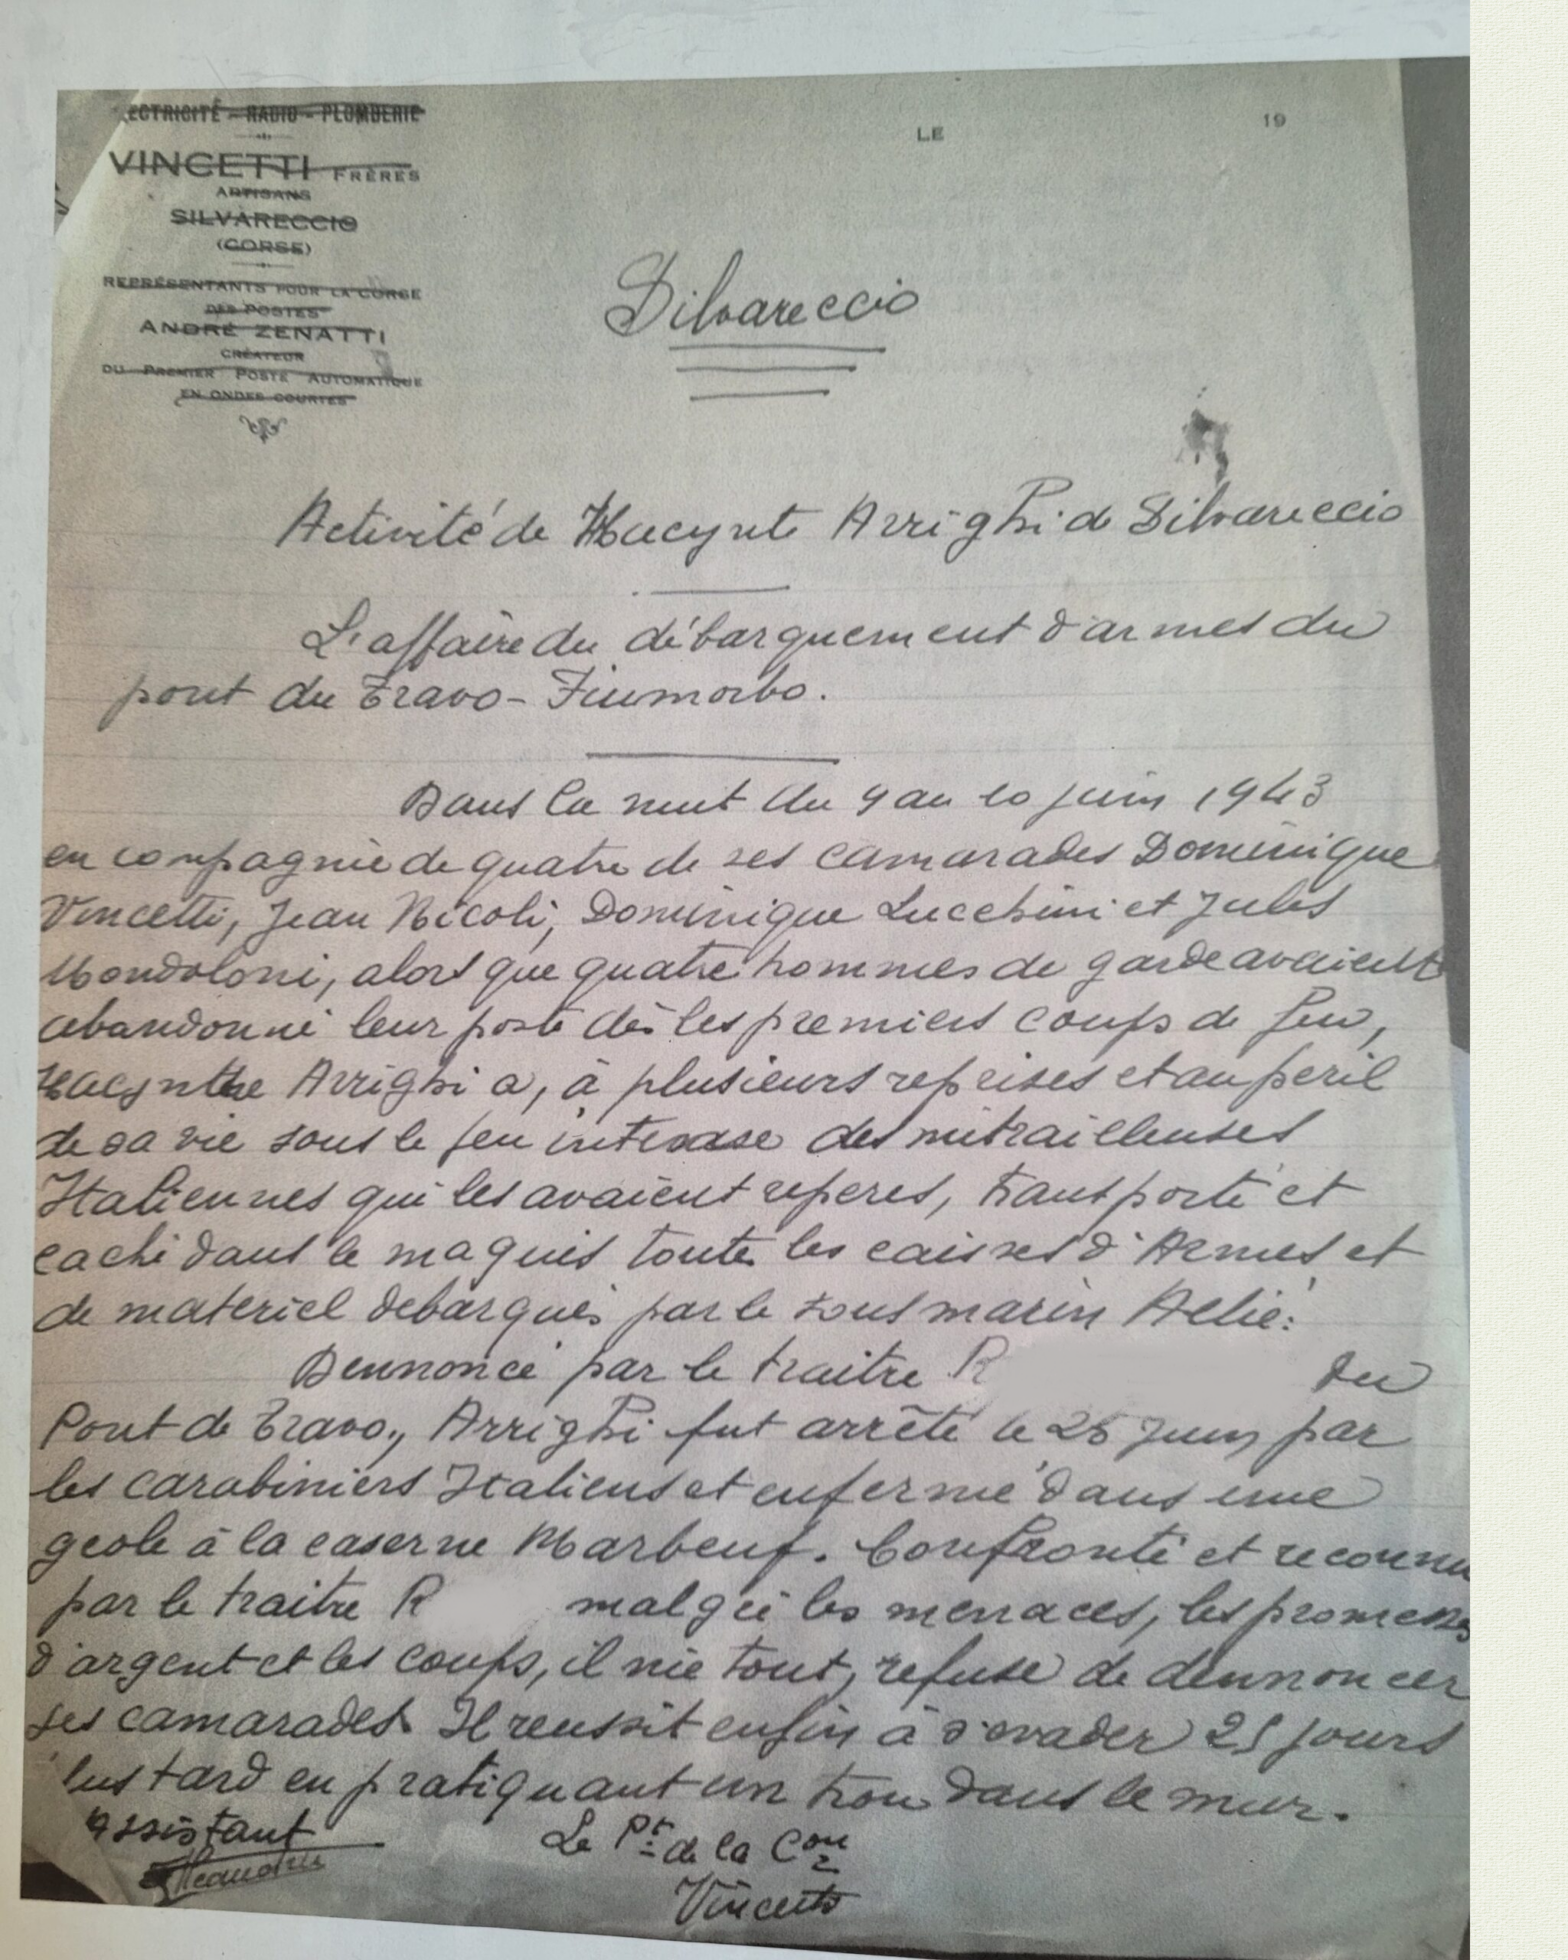 ECTRICITÉ - RADIO - PLOMBERIE
VINCETTI FRÈRES
ARTISANS
SILVARECCIO
(CORSE)
REPRÉSENTANTS POUR LA CORSE
DES POSTES
ANDRÉ ZENATTI
CRÉATEUR
DU PREMIER POSTE AUTOMATIQUE
EN ONDES COURTES
LE 19
Silvareccio
Activité de Hacynte Arrighi de Silvareccio
L'affaire du débarquement d'armes du
pont du Travo - Fiumorbo.
Dans la nuit du 9 au 10 juin 1943
en compagnie de quatre de ses camarades Dominique
Vincetti, Jean Nicoli, Dominique Lucchini et Jules
Mondoloni, alors que quatre hommes de garde avaient
abandonné leur poste dès les premiers coups de feu,
Hacynthe Arrighi a, à plusieurs reprises et au péril
de sa vie sous le feu intense des mitrailleuses
Italiennes qui les avaient reperes, transporté et
caché dans le maquis toute les caisses d'Armes et
de materiel debarqués par le sous marin
Dennoncé par le traitre R du
Pont de Travo, Arrighi fut arrêté le 26 Juin par
les carabiniers Italiens et enfermé dans une
geole à la caserne Marbeuf. Confronté et reconnu
par le traitre R malgré les menaces, les promesses
d'argent et les coups, il nie tout, refuse de dennoncer
ses camarades. Il reussit enfin à s'evader 25 jours
lus tard en pratiquant un trou dans le mur.
assistant Le Pt de la Con
Vincetti